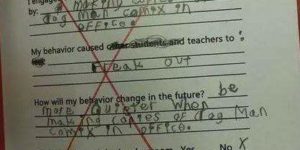 I engage
by: making copies
dog Man comix in
office.
My behavior caused other students and teachers to :
Freak out
How will my behavior change in the future? be
more quieter when
making copies of dog Man
comix in office.
Yes No X